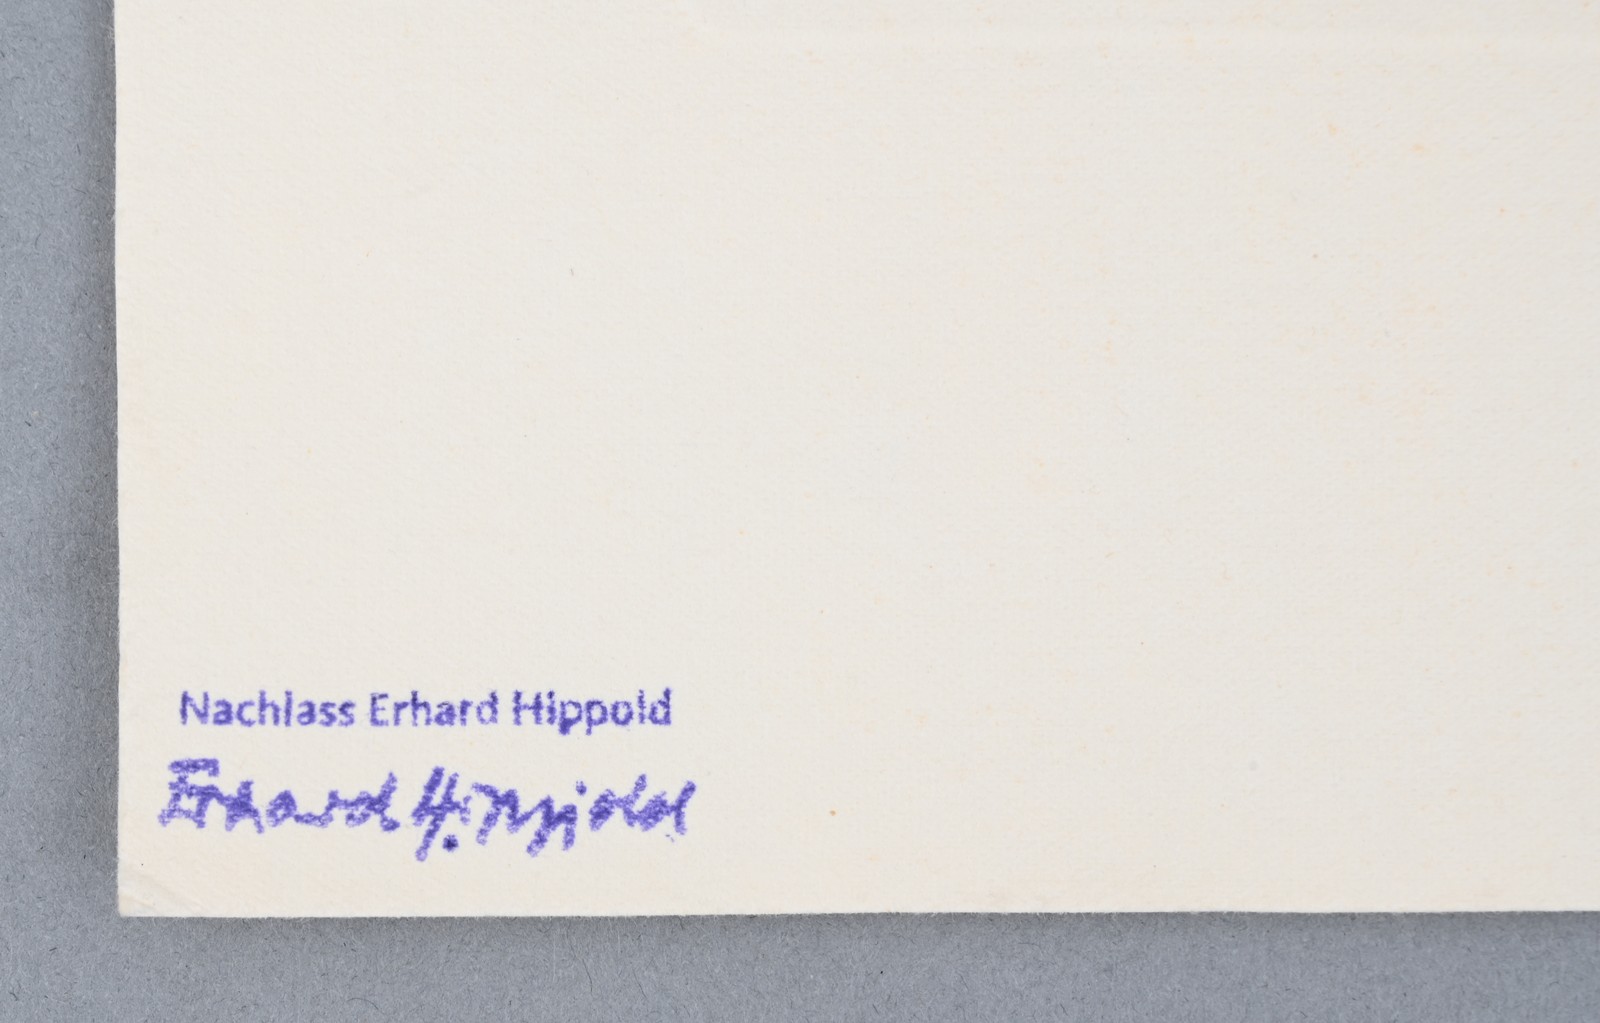 Nachlass Erhard Hippold
Erhard Hippold